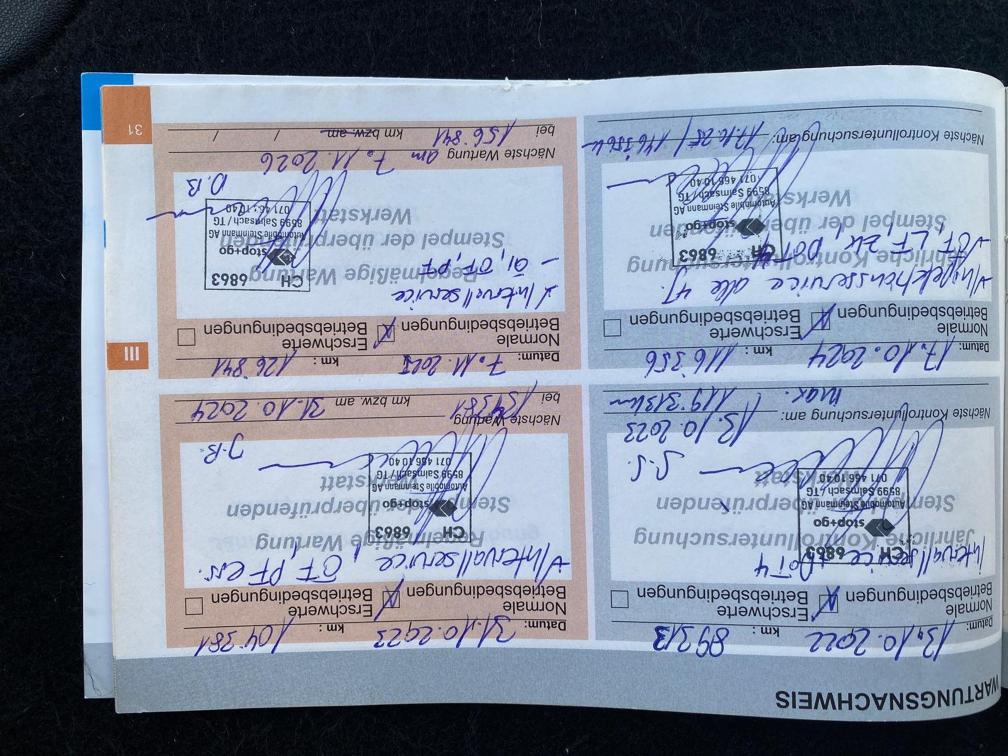 WARTUNGSNACHWEIS
Datum: 13.10.2022 km: 89313
Normale Betriebsbedingungen
Erschwerte Betriebsbedingungen
Jährliche Kontrolluntersuchung
Intervallservice + DOT4
Stempel der überprüfenden
Werkstatt
CH 6863
stop+go
Automobile Steinmann AG
8599 Salmsach / TG
071 466 10 40
S.S.
Nächste Kontrolluntersuchung am: 13.10.2023
max. 119'313km
Datum: 31.10.2023 km: 104'381
Normale Betriebsbedingungen
Erschwerte Betriebsbedingungen
Regelmäßige Wartung
Intervallservice, ÖF, PF ers.
Stempel der überprüfenden
Werkstatt
CH 6863
stop+go
Automobile Steinmann AG
8599 Salmsach / TG
071 466 10 40
J.B.
Nächste Wartung
bei 134'381 km bzw. am 31.10.2024
Datum: 17.10.2024 km: 116'356
Normale Betriebsbedingungen
Erschwerte Betriebsbedingungen
Inspektionsservice alle 4J.
Jährliche Kontrolluntersuchung
ÖF, LF 2x, DOT4
Stempel der überprüfenden
Werkstatt
CH 6863
stop+go
Automobile Steinmann AG
8599 Salmsach / TG
071 466 10 40
Nächste Kontrolluntersuchung am: 17.10.25 / 146'356km
Datum: 7.11.2025 km: 126'841
Normale Betriebsbedingungen
Erschwerte Betriebsbedingungen
Intervallservice
Regelmäßige Wartung
- Öl, ÖF, PF
Stempel der überprüfenden
Werkstatt
CH 6863
stop+go
Automobile Steinmann AG
8599 Salmsach / TG
071 466 10 40
D.B
Nächste Wartung am 7.11.2026
bei 156'841 km bzw. am / /
III
31